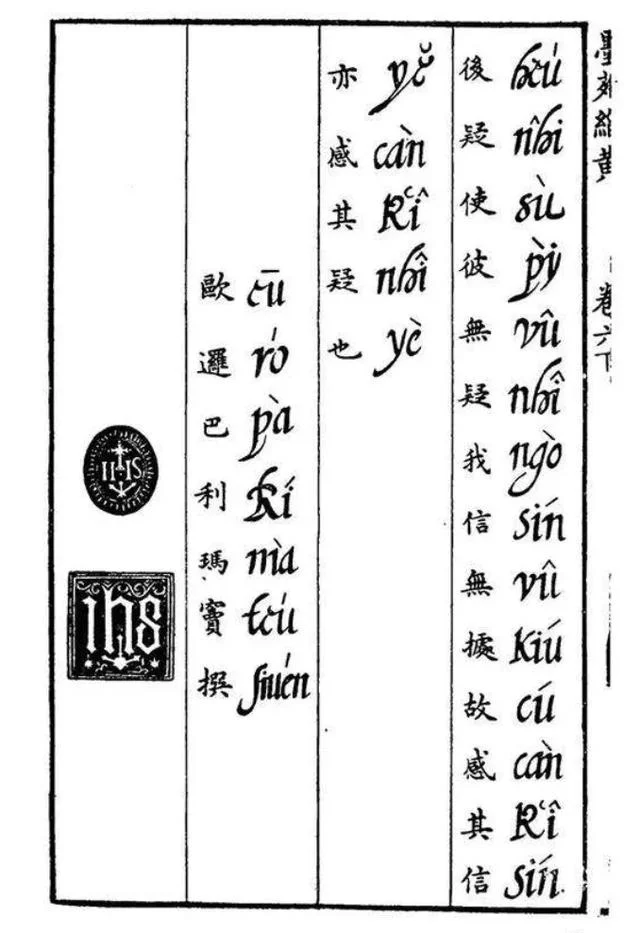 墨苑緇黃 卷六下
héu nhî sù pỳ vû nhî ngò sín vû kiú cú càn kʻî sín
後疑使彼無疑我信無據故感其信
yĕ càn kʻî nhî yè
亦感其疑也
eū ró pà lí mà teú siuén
歐邏巴利瑪竇撰
IHS
ihs